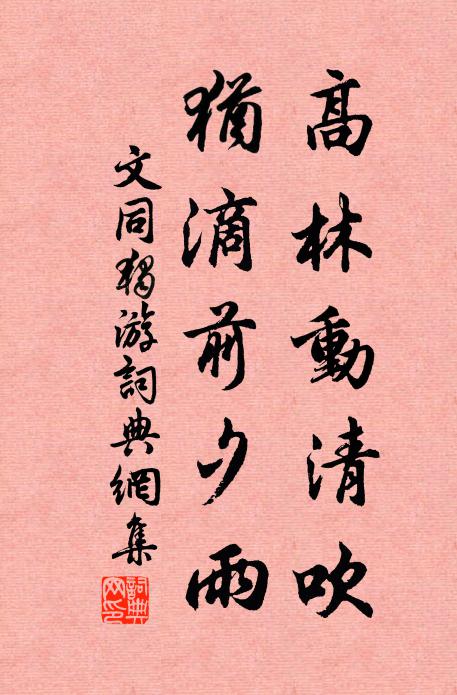 高林動清吹
猶滴前夕雨
文同獨游詞典網集
詞典網印